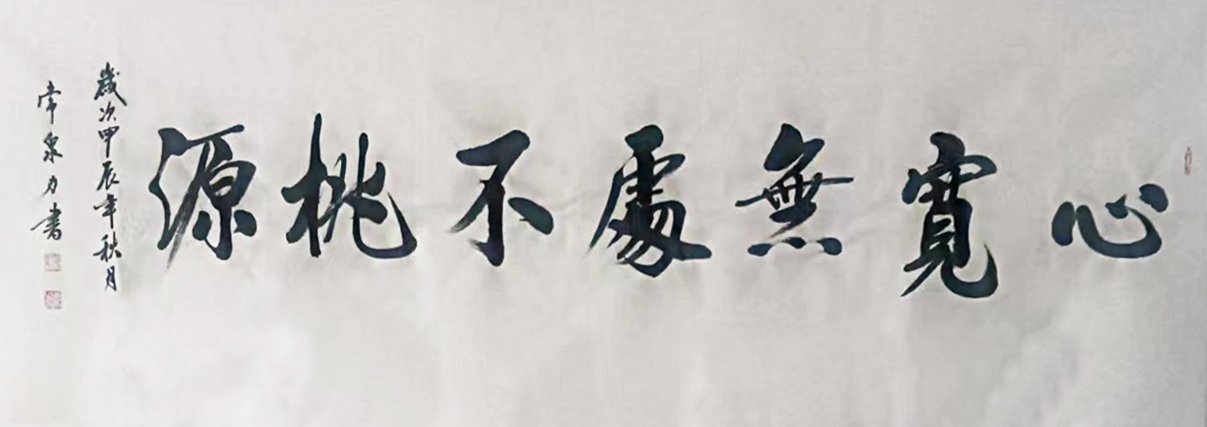 心寬無處不桃源
歲次甲辰年秋月
常泉力書